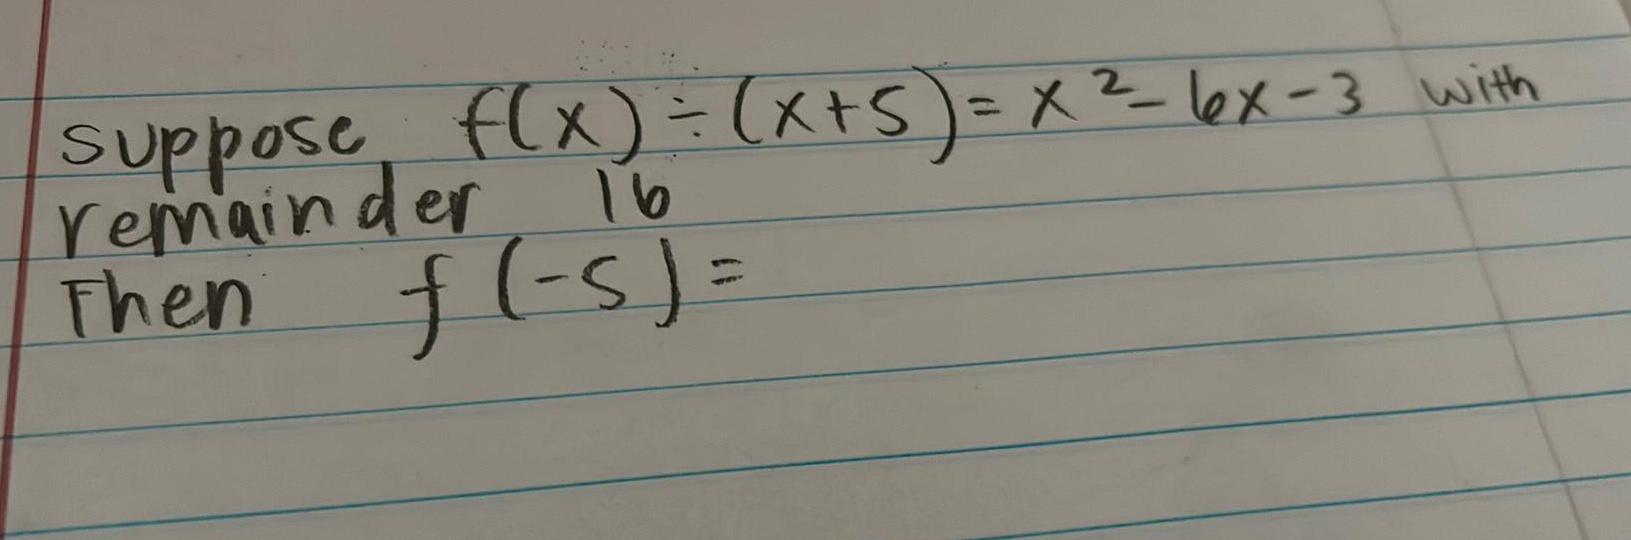 suppose f(x) ÷ (x+5) = x² - 6x - 3 with
remainder 16
Then f(-5) =